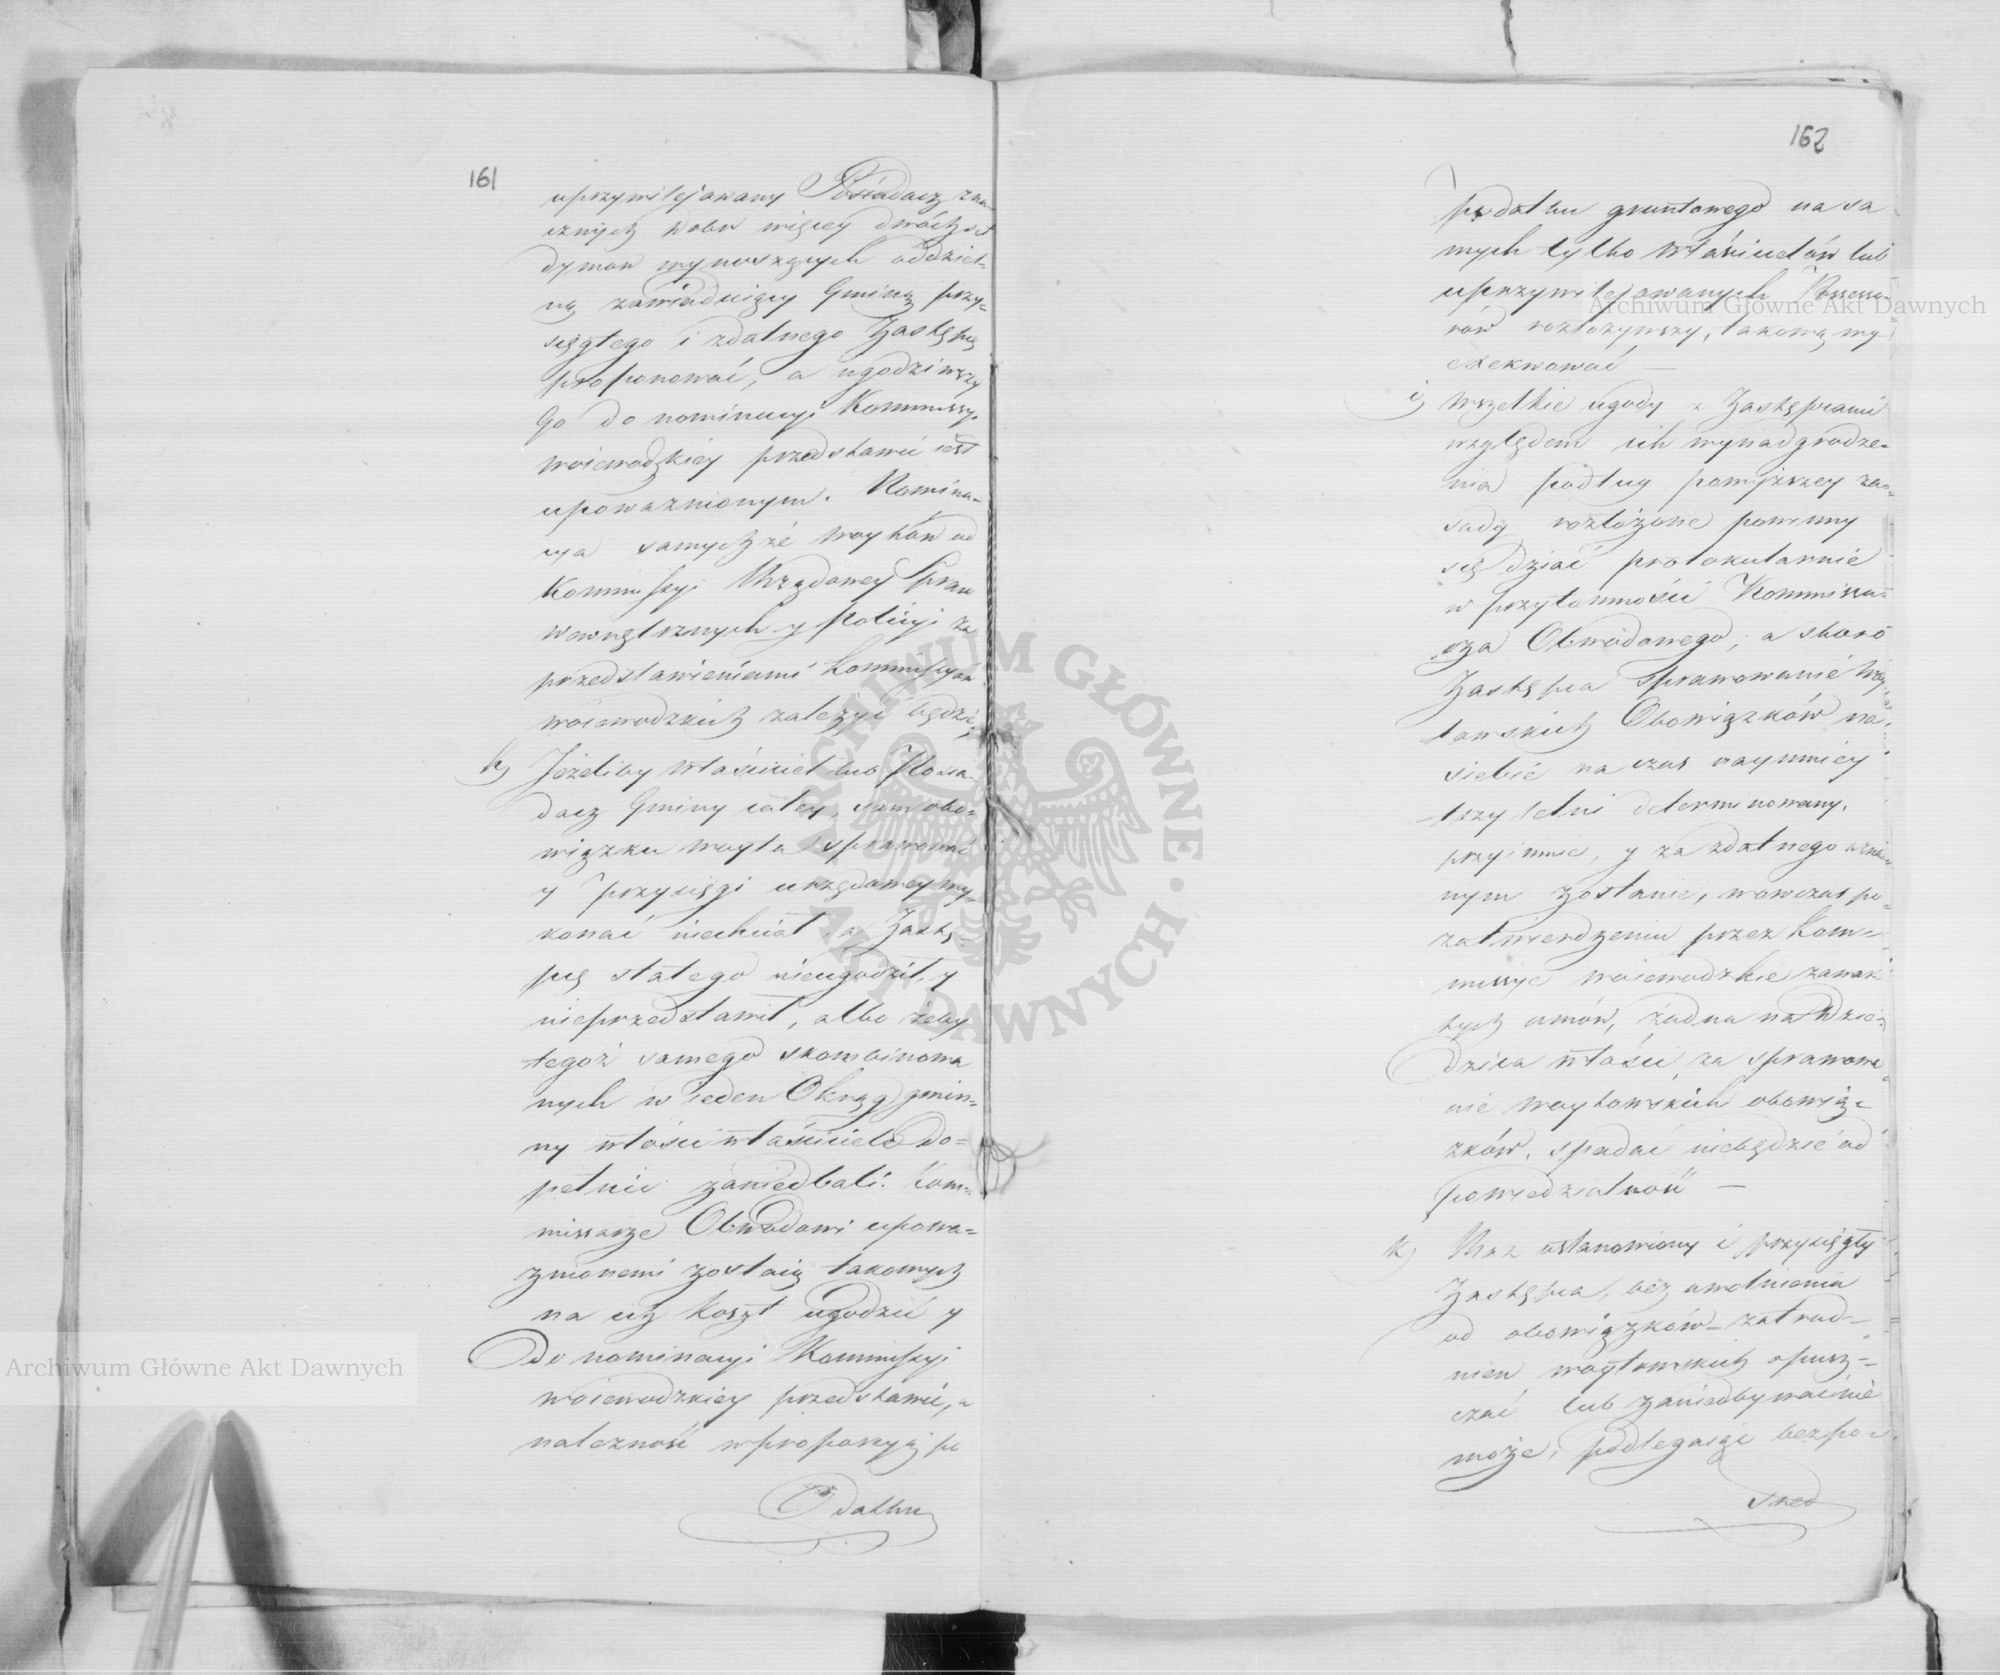 161
uprzywilejowany Posiadacz zna-
cznych Dobr więcey dwóchset
dymow wynoszących oddziel-
ną zawiaduiący Gminą przy-
sięgłego i zdatnego Zastępcę
proponować, a ugodziwszy
Go do nominacyi Kommissyi
woiewodzkiey przedstawić iest
upoważnionym. Nomina-
cya samychże woytów od
Kommissyi Rządowey Spraw
Wewnętrznych y Policyi za
przedstawieniami Kommissyów
woiewodzkich zależyć będzie
h, Jeżeliby właściciel lub Posia-
dacz Gminy całey, sam obo-
wiązku woyta sprawować
y przysięgi urzędowey wy-
konać niechciał, a Zastę-
pcę stałego nieugodził, y
nieprzedstawił, albo żeby
tegoż samego skombinowa
nych w ieden Okrąg gmin-
ny włości właściciele do-
pełnić zaniedbali: Kom-
missarze Obwodowi upowa-
żnionemi zostaią takowych
na ich koszt ugodzić y
Do nominacyi Kommissyi
woiewodzkiey przedstawić, a
należność w proporcyą po
Odatku
162
podatku gruntowego na sa-
mych tylko właścicielów lub
uprzywilejowanych Possesso-
rów rozłożywszy, takową wy
exekwować —
i, Wszelkie ugody z Zastępcami
względem ich wynadgrodze-
nia podług powyższey za-
sady rozłożone powinny
się dziać protokularnie
w przytomności Kommissa-
rza Obwodowego, a skoro
Zastępca sprawowanie Woy-
towskich Obowiązków na
siebie na czas naymniey
trzyletni determinowany,
przyimie, y za zdatnego uzna
nym zostanie, wowczas po-
zatwierdzeniu przez Kom-
missye woiewodzkie zawar-
tych umów, żadna na Dzie-
dzica włości za sprawowa
nie woytowskich obowią-
zków, spadać niebędzie od
powiedzialność —
k, Raz ustanowiony i przysięgły
Zastępca, bez uwolnienia
od obowiązków zatrud-
nien woytowskich opusz-
czać lub zaniedbywać nie
może, podlegaiąc bezpo-
sred
Archiwum Główne Akt Dawnych
Archiwum Główne Akt Dawnych
ARCHIWUM GŁÓWNE • AKT DAWNYCH •